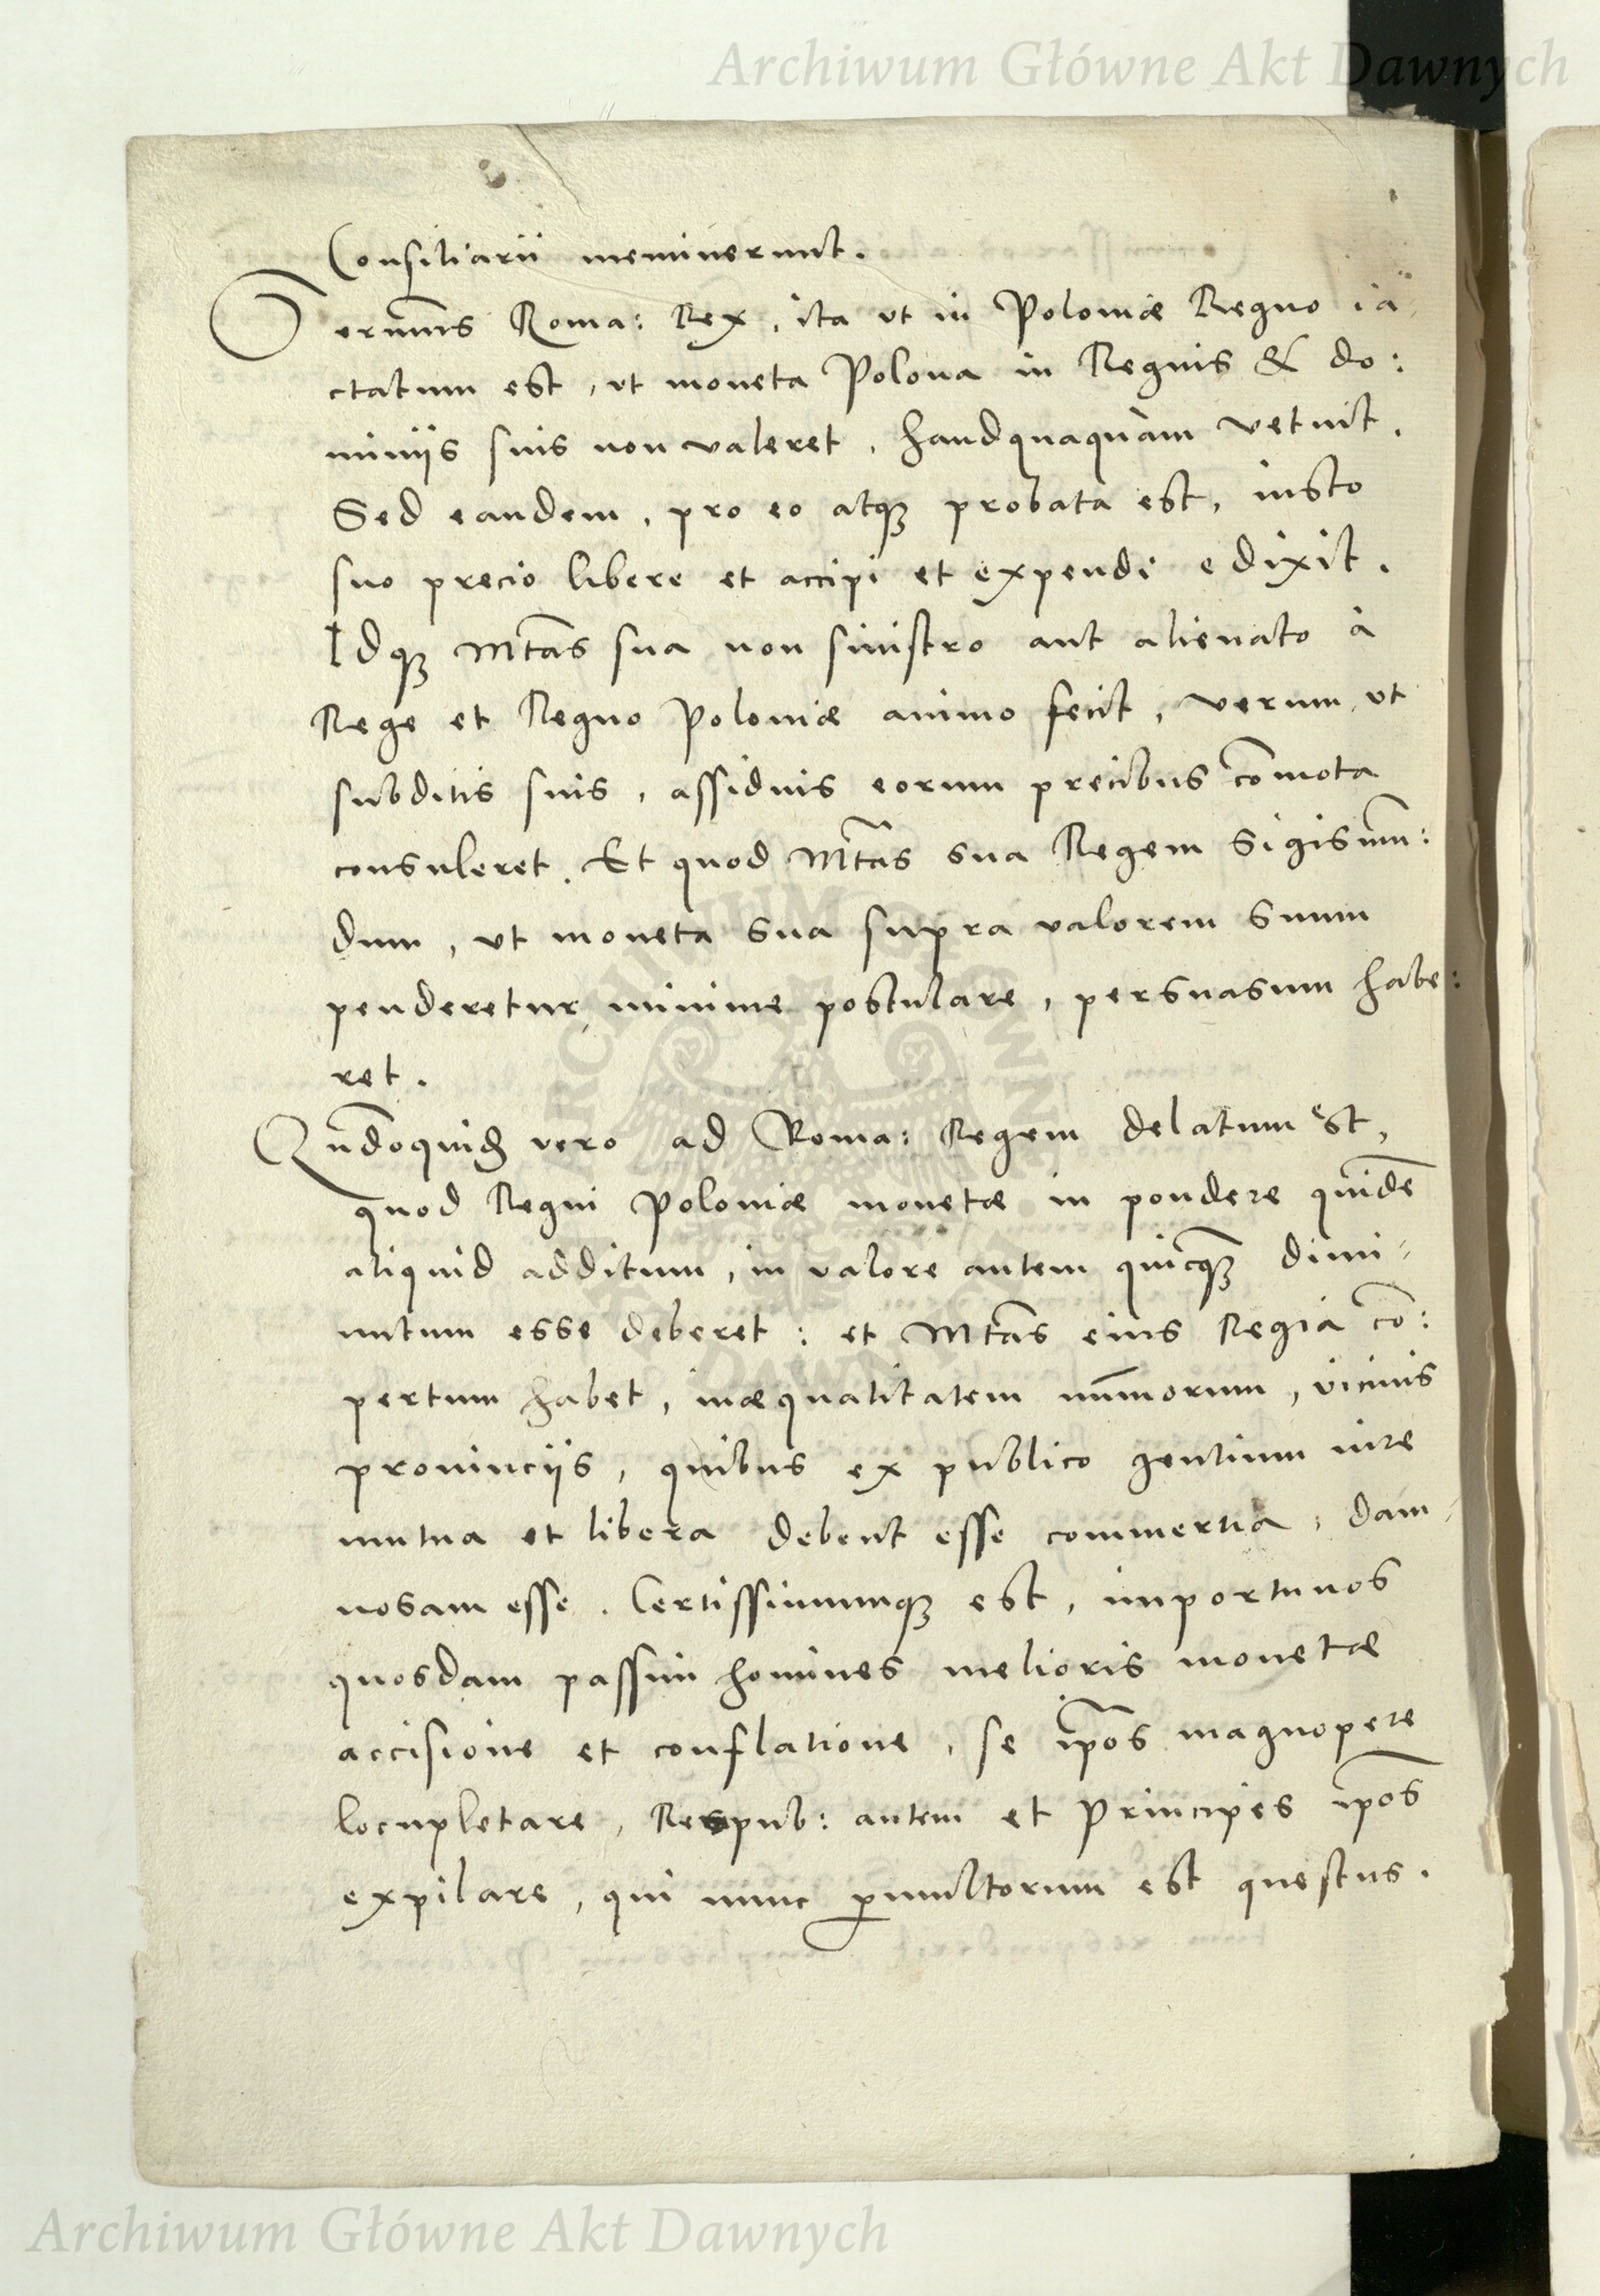 Archiwum Główne Akt Dawnych
Consiliarii meminerunt.
Serenm̄s Roma: Rex, ita vt in Poloniæ Regno ia-
ctatum est, vt moneta Polona in Regnis & do:
minijs suis non valeret, haudquaquàm vetuit.
Sed eandem, pro eo atqꝫ probata est, iusto
suo precio libere et accipi et expendi edixit.
Idqꝫ Mtas̄ sua non sinistro aut alienato à
Rege et Regno Poloniæ animo fecit, verum vt
subditis suis, assiduis eorum precibus com̄ota
consuleret. Et quod Mtas̄ sua Regem Sigismū:
dum, vt moneta sua supra valorem suum
penderetur minime postulare, persuasum habe:
ret.
Qn̄doquid̄ vero ad Roma: Regem delatum est,
quod Regni Poloniæ monetæ in pondere quidē
aliquid additum, in valore autem quicqꝫ dimi-
nutum esse deberet: et Mtas̄ eius Regia cō:
pertum habet, inæqualitatem num̄orum, vicinis
prouincijs, quibus ex publico gentium iure
mutua et libera debent esse commertia, dam-
nosam esse. Certissimumqꝫ est, importunos
quosdam passim homines melioris monetæ
accisione et conflatione, se ip̄os magnopere
locupletare, Respub: autem et Principes ip̄os
expilare, qui nunc ꝑmultorum est questus.
ARCHIWUM GŁÓWNE AKT DAWNYCH
Archiwum Główne Akt Dawnych